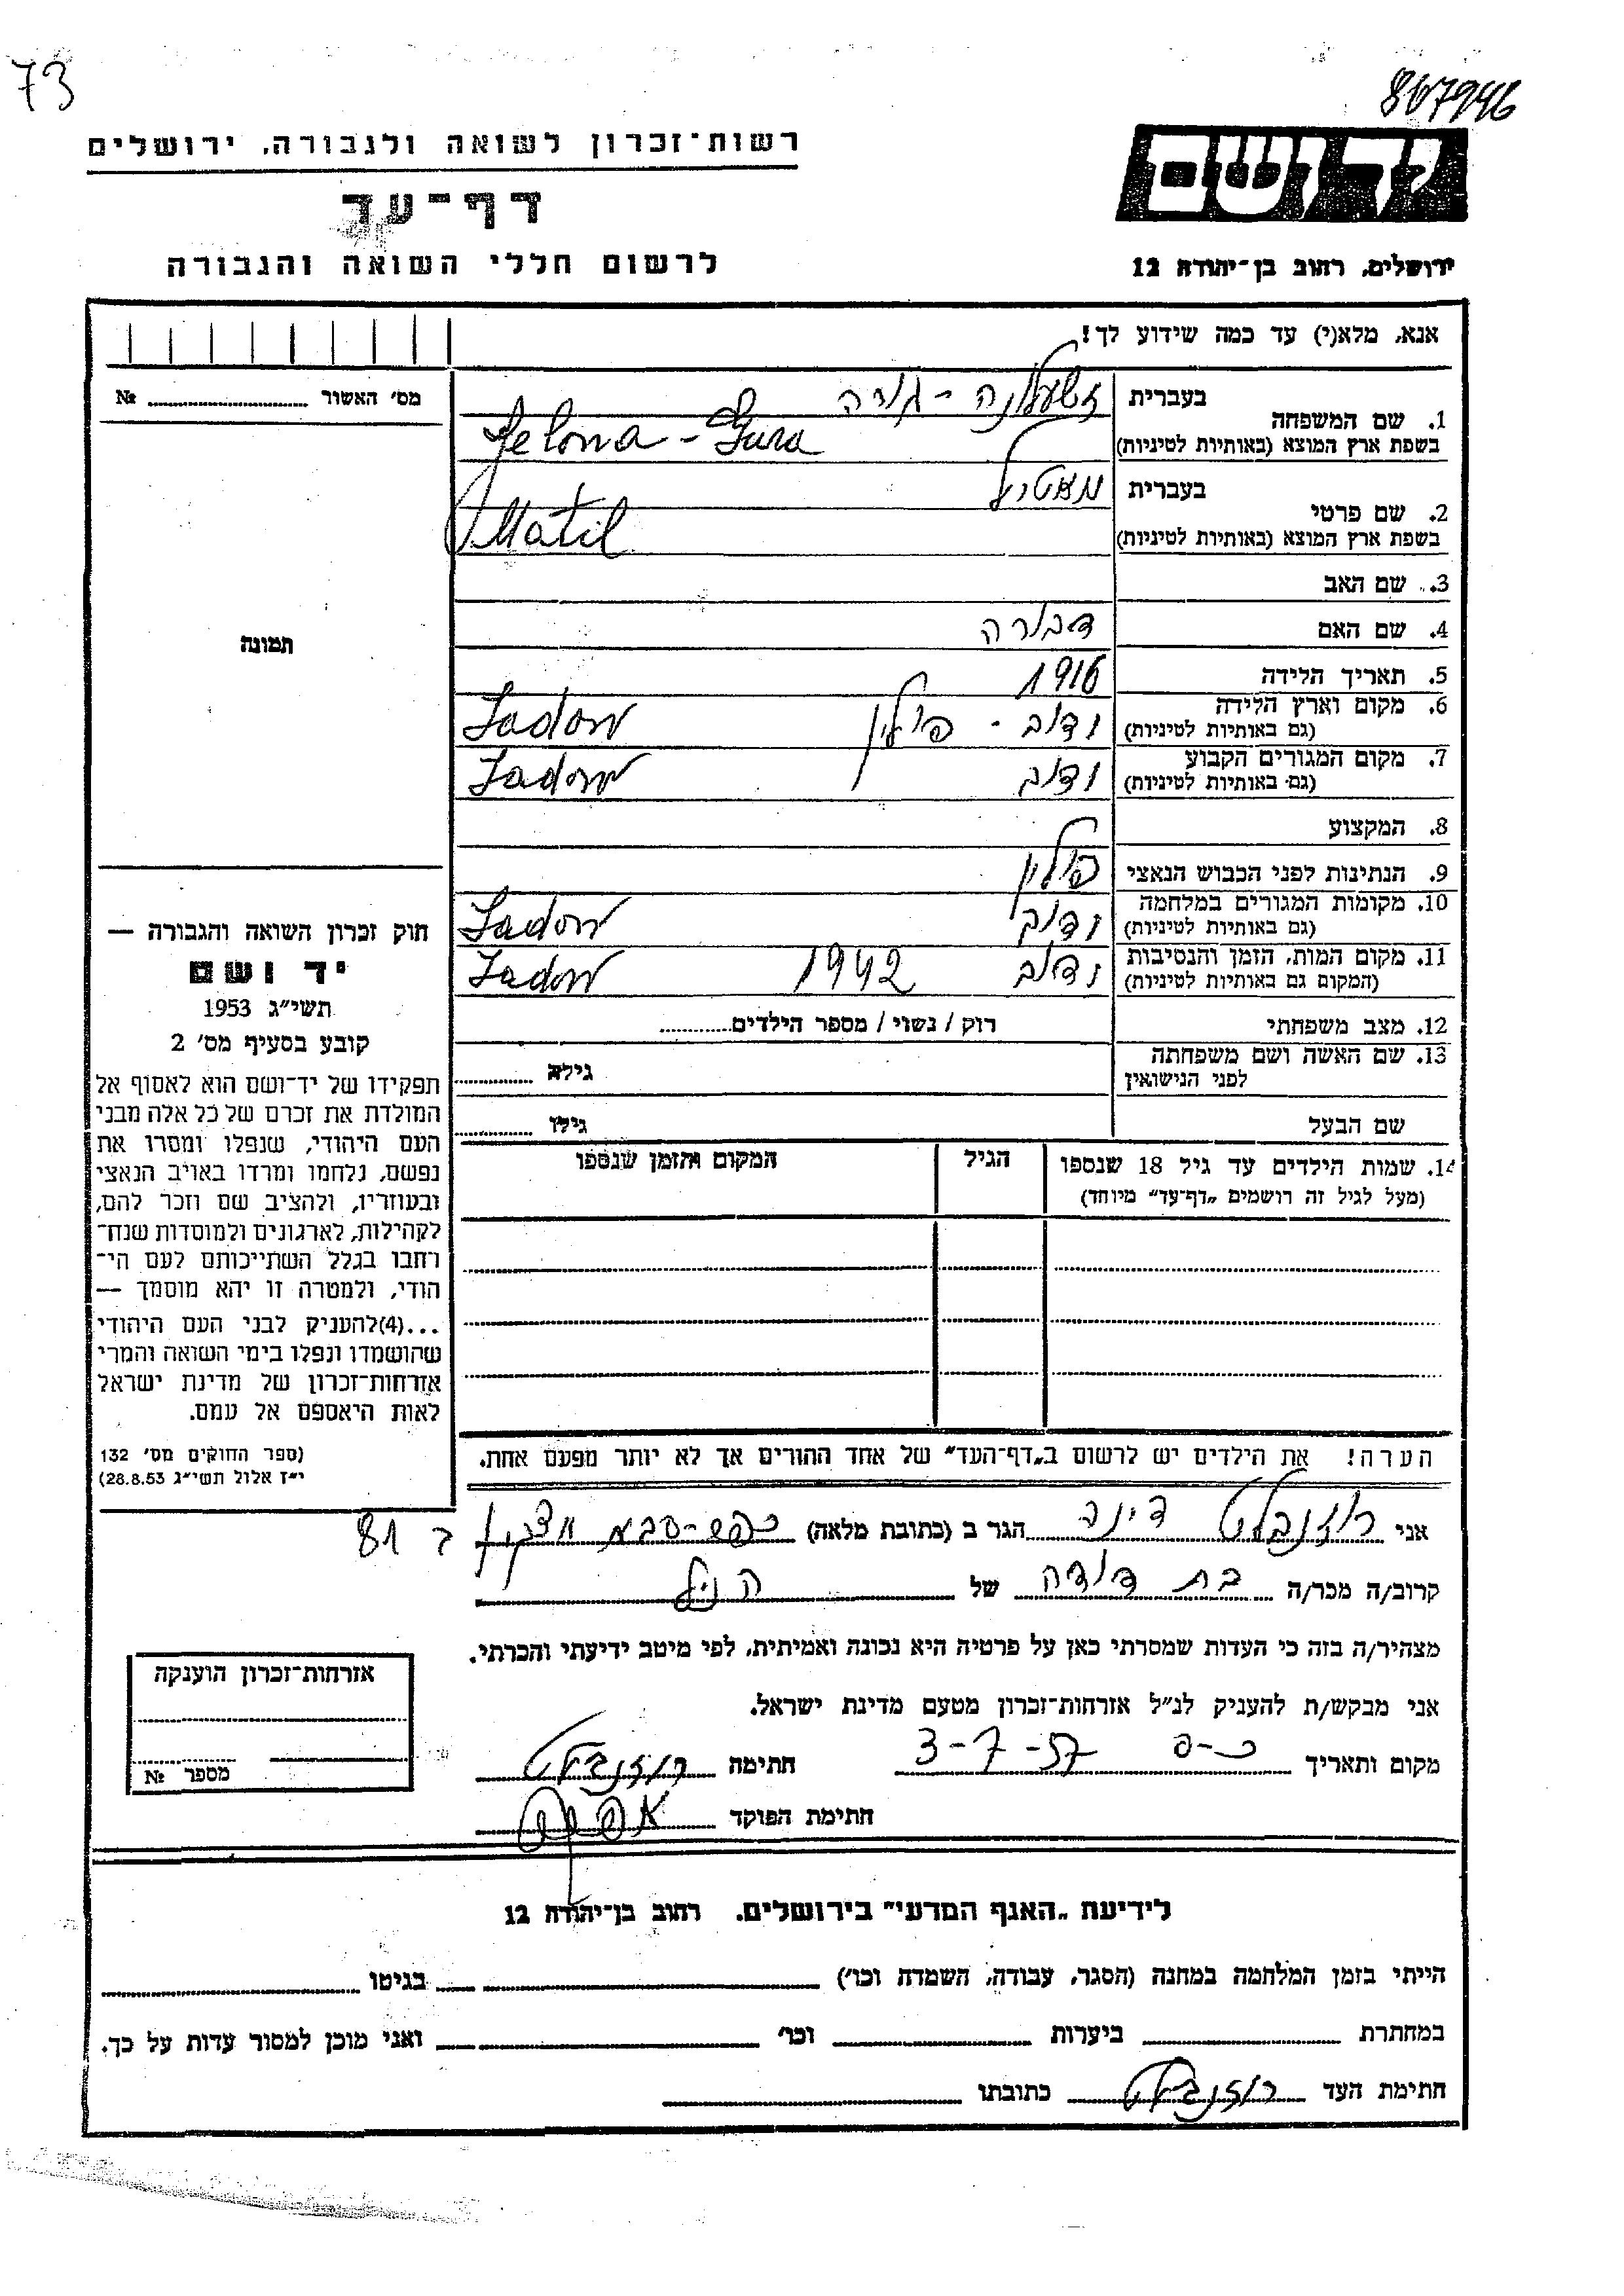 73
867946
רשות־זכרון לשואה ולגבורה, ירושלים
יד ושם
דף־עד
לרשום חללי השואה והגבורה
ירושלים, רחוב בן־יהודה 12
אנא, מלא(י) עד כמה שידוע לך!
מס' האשור № ..........
1. שם המשפחה
בעברית
בשפת ארץ המוצא (באותיות לטיניות)
Jelona - Gura
2. שם פרטי
בעברית מאטיל
בשפת ארץ המוצא (באותיות לטיניות) Matil
3. שם האב
4. שם האם דבורה
תמונה
5. תאריך הלידה 1916
6. מקום וארץ הלידה
(גם באותיות לטיניות) ידוב - פולין Jadow
7. מקום המגורים הקבוע
(גם באותיות לטיניות) ידוב Jadow
8. המקצוע
9. הנתינות לפני הכבוש הנאצי פולין
10. מקומות המגורים במלחמה
(גם באותיות לטיניות) ידוב Jadow
11. מקום המות, הזמן והנסיבות
(המקום גם באותיות לטיניות) ידוב 1942 Jadow
12. מצב משפחתי רוק / נשוי / מספר הילדים..........
13. שם האשה ושם משפחתה
לפני הנישואין גילה ..........
שם הבעל גילו ..........
14. שמות הילדים עד גיל 18 שנספו
(מעל לגיל זה רושמים „דף־עד" מיוחד)
הגיל
המקום והזמן שנספו
חוק זכרון השואה והגבורה —
יד ושם
תשי"ג 1953
קובע בסעיף מס' 2
תפקידו של יד־ושם הוא לאסוף אל
המולדת את זכרם של כל אלה מבני
העם היהודי, שנפלו ומסרו את
נפשם, נלחמו ומרדו באויב הנאצי
ובעוזריו, ולהציב שם וזכר להם,
לקהילות, לארגונים ולמוסדות שנח־
רחבו בגלל השתייכותם לעם הי־
הודי, ולמטרה זו יהא מוסמך —
...(4)להעניק לבני העם היהודי
שהושמדו ונפלו בימי השואה והמרי
אזרחות־זכרון של מדינת ישראל
לאות היאספם אל עמם.
(ספר החוקים מס' 132
י"ז אלול תשי"ג 28.8.53)
הערה! את הילדים יש לרשום ב„דף־העד" של אחד ההורים אך לא יותר מפעם אחת.
אני רוזנבלט דינה הגר ב (כתובת מלאה) כפר-סבא 81
קרוב/ה מכר/ה בת דודה של הנ"ל
מצהיר/ה בזה כי העדות שמסרתי כאן על פרטיה היא נכונה ואמיתית, לפי מיטב ידיעתי והכרתי.
אני מבקש/ת להעניק לנ"ל אזרחות־זכרון מטעם מדינת ישראל.
מקום ותאריך כ-ס 3-7-57 חתימה רוזנבלט
חתימת הפוקד
אזרחות־זכרון הוענקה
מספר №
לידיעת „האגף המדעי" בירושלים. רחוב בן־יהודה 12
הייתי בזמן המלחמה במחנה (הסגר, עבודה, השמדה וכו') בגיטו
במחתרת ביערות וכו' ואני מוכן למסור עדות על כך.
חתימת העד רוזנבלט כתובתו